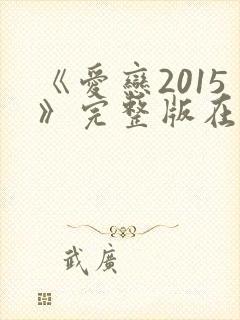 《爱恋2015
》完整版在
武广